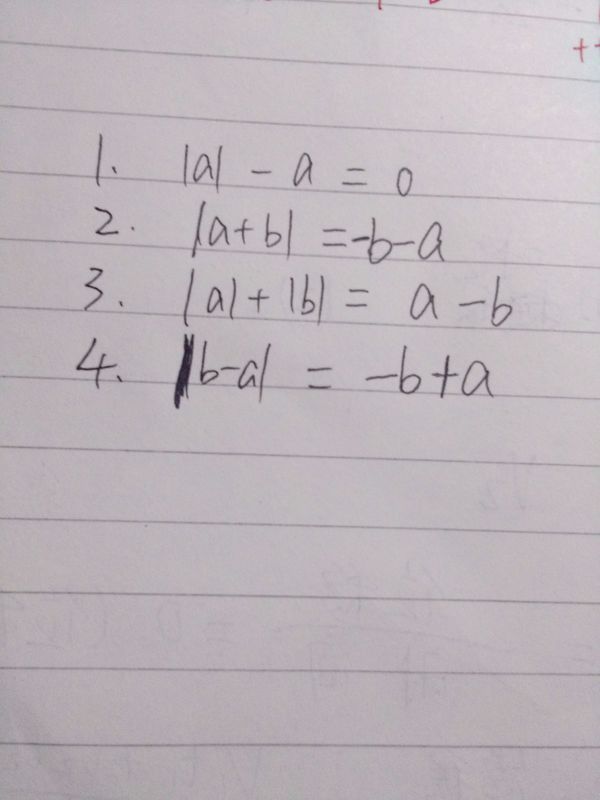 1. |a| - a = 0
2. |a+b| = -b-a
3. |a|+|b| = a-b
4. |b-a| = -b+a